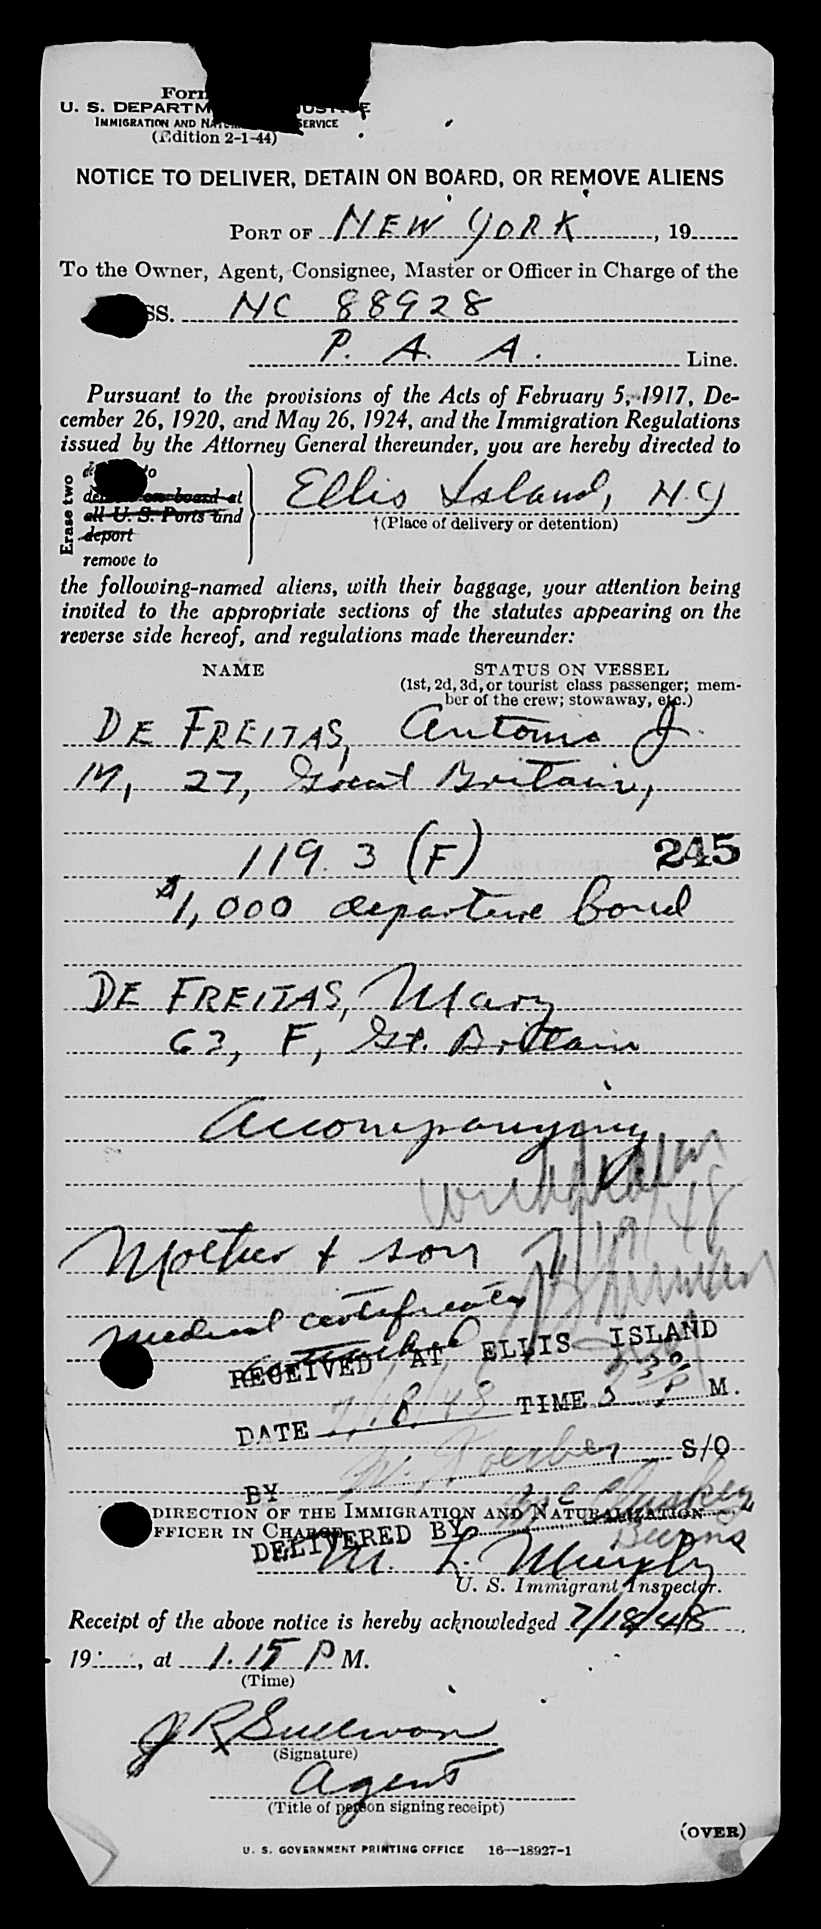 Form
U. S. DEPARTM JUSTICE
IMMIGRATION AND NA SERVICE
(Edition 2-1-44)
NOTICE TO DELIVER, DETAIN ON BOARD, OR REMOVE ALIENS
PORT OF NEW YORK, 19
To the Owner, Agent, Consignee, Master or Officer in Charge of the
SS. NC 88928
P. A. A. Line.
Pursuant to the provisions of the Acts of February 5, 1917, De-
cember 26, 1920, and May 26, 1924, and the Immigration Regulations
issued by the Attorney General thereunder, you are hereby directed to
Erase two
to
on board at
all U. S. Ports and
deport
remove to
Ellis Island, N.Y
†(Place of delivery or detention)
the following-named aliens, with their baggage, your attention being
invited to the appropriate sections of the statutes appearing on the
reverse side hereof, and regulations made thereunder:
NAME STATUS ON VESSEL
(1st, 2d, 3d, or tourist class passenger; mem-
ber of the crew; stowaway, etc.)
DE FREITAS, Antonio J.
M, 27, Great Britain,
119.3 (F) 245
$1,000 departure bond
DE FREITAS, Mary
63, F, Gt. Britain
Accompanying
withdrawn
7/19/48
Mother + son
medical certificates
attached
RECEIVED AT ELLIS ISLAND
DATE 7/18/48 TIME 3 30 P M.
BY S/O
DIRECTION OF THE IMMIGRATION AND NATURALIZATION
FFICER IN CHARGE
DELIVERED BY McCluskey
Burns
M. L. Murphy
U. S. Immigrant Inspector.
Receipt of the above notice is hereby acknowledged 7/18/48
19, at 1.15 P M.
(Time)
J R Sullivan
(Signature)
Agent
(Title of person signing receipt)
(OVER)
U. S. GOVERNMENT PRINTING OFFICE 16—18927-1